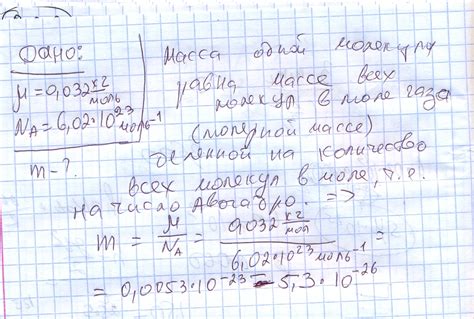 Дано:
μ = 0,032 кг/моль
N_A = 6,02·10²³ моль⁻¹
m - ?
Масса одной молекулы
равна массе всех
молекул в моле газа
(молярной массе)
деленной на количество
всех молекул в моле, т.е.
на число Авогадро. =>
m = μ/N_A = 0,032 кг/мол / 6,02·10²³ моль⁻¹ =
= 0,0053·10⁻²³ = 5,3·10⁻²⁶